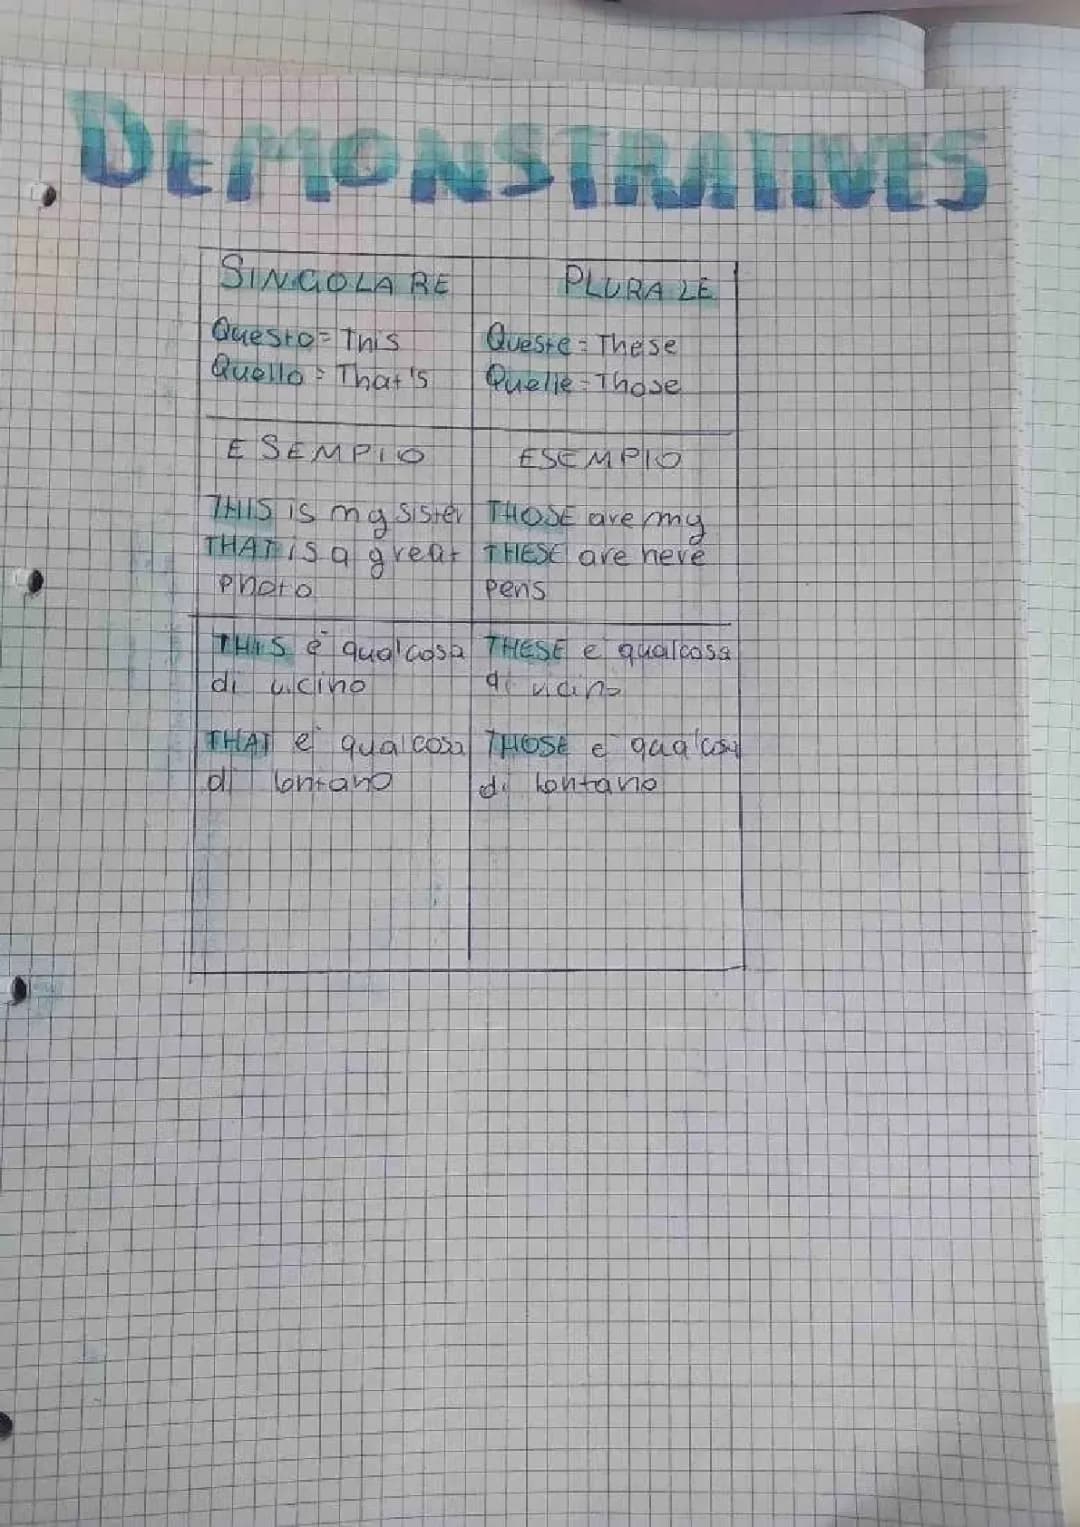 DEMONSTRATIVES
SINGOLARE
Questo = This
Quello = That's
PLURALE
Queste = These
Quelle = Those
ESEMPIO
THIS is my sister
THAT is a great
photo
ESEMPIO
THOSE are my
THESE are here
pens
THIS è qualcosa
di vicino
THAT è qualcosa
di lontano
THESE è qualcosa
di vicino
THOSE è qualcosa
di lontano